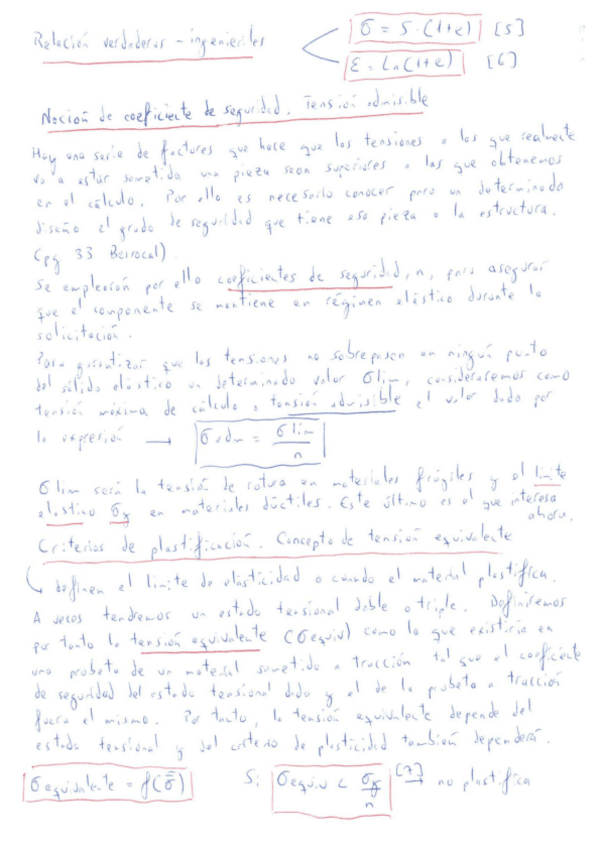 Relación verdaderas - ingenieriles
σ = S · (1+e) [5]
ε = Ln(1+e) [6]
Noción de coeficiente de seguridad. Tensión admisible
Hay una serie de factores que hace que las tensiones a las que realmente
va a estar sometida una pieza sean superiores a las que obtenemos
en el cálculo. Por ello es necesario conocer para un determinado
diseño el grado de seguridad que tiene esa pieza o la estructura.
(pg 33 Berrocal).
Se emplearán por ello coeficientes de seguridad, n, para asegurar
que el componente se mantiene en régimen elástico durante la
solicitación.
Para garantizar que las tensiones no sobrepasen en ningún punto
del sólido elástico un determinado valor σlim, consideraremos como
tensión máxima de cálculo o tensión admisible el valor dado por
la expresión → σadm = σlim / n
σlim será la tensión de rotura en materiales frágiles y el límite
elástico σy en materiales dúctiles. Este último es el que interesa
ahora.
Criterios de plastificación. Concepto de tensión equivalente
definen el límite de elasticidad o cuando el material plastifica.
A veces tendremos un estado tensional doble o triple. Definiremos
por tanto la tensión equivalente (σequiv) como la que existiría en
una probeta de un material sometido a tracción tal que el coeficiente
de seguridad del estado tensional dado y el de la probeta a tracción
fuera el mismo. Por tanto, la tensión equivalente depende del
estado tensional y del criterio de plasticidad también dependerá.
σequivalente = f(σ̿) Si σequiv < σy / n [7] → no plastifica